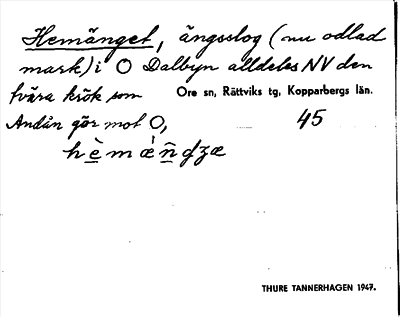 Hemänget, ängsslog (nu odlad
mark) i O Dalbyn alldeles NV den
tvära krök som Ore sn, Rättviks tg, Kopparbergs län.
Andån gör mot O, 45
THURE TANNERHAGEN 1947.